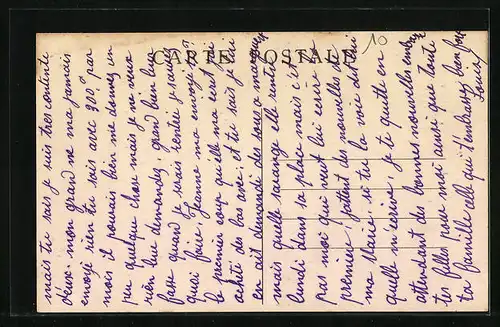 CARTE POSTALE
10
mais tu sais je suis tres contente
deux. mon grand ne ma jamais
envoyé rien tu sais avec 300f par
mois il pourais bien me donnez un
peu quelque chose mais je ne veux
rien lui demandez. grand bien lui
fasse quand je serais rentrée je saurez
quoi faire Jeanne ma envoyé
le premier coup qu'elle ma écrit j'ai
acheté des bas avec. et ti sais je lui
en ait demandé des sous a
mais quelle sarange elle rentre
lundi dans sa place mais c'est
pas moi qui veut lui ecrire la
premiere j'attent des nouvelles de
ma Marie. si tu la voie dit lui
quelle m'ecrive. je te quitte en
attendant de bonnes nouvelles
tes filles pour moi ainsi que toute
ta famille celle qui t'embrasse bien fort
Louise